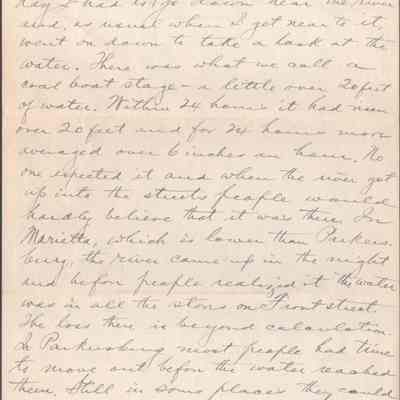 day I had to go down near the river
and, as usual when I get near to it,
went on down to take a look at the
water. There was what we call a
coal boat stage - a little over 20 feet
of water. Within 24 hours it had risen
over 20 feet and for 24 hours more
averaged over 6 inches an hour. No
one expected it and when the river got
up into the streets people would
hardly believe that it was there. In
Marietta, which is lower than Parkers
burg, the river came up in the night
and before people realized it the water
was in all the stores on Front street.
The loss there is beyond calculation.
In Parkersburg most people had time
to move out before the water reached
them. Still in some places they could